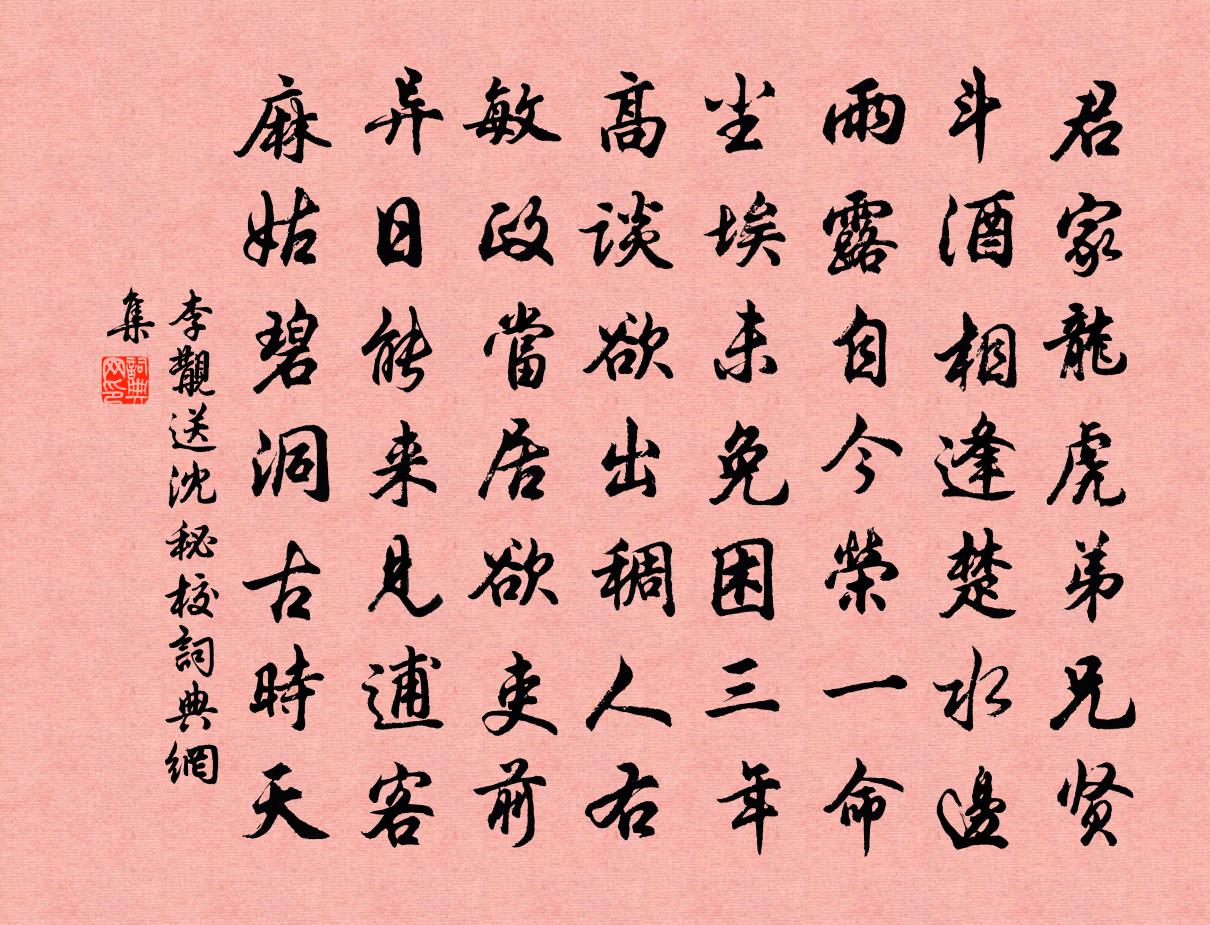 君家龍虎弟兄贤
斗酒相逢楚水邊
雨露自今榮一命
尘埃未免困三年
高谈欲出稠人右
敏政當居欲吏前
异日能来見逋客
麻姑碧洞古時天
李觀送沈秘校詞典網
集
詞典网印